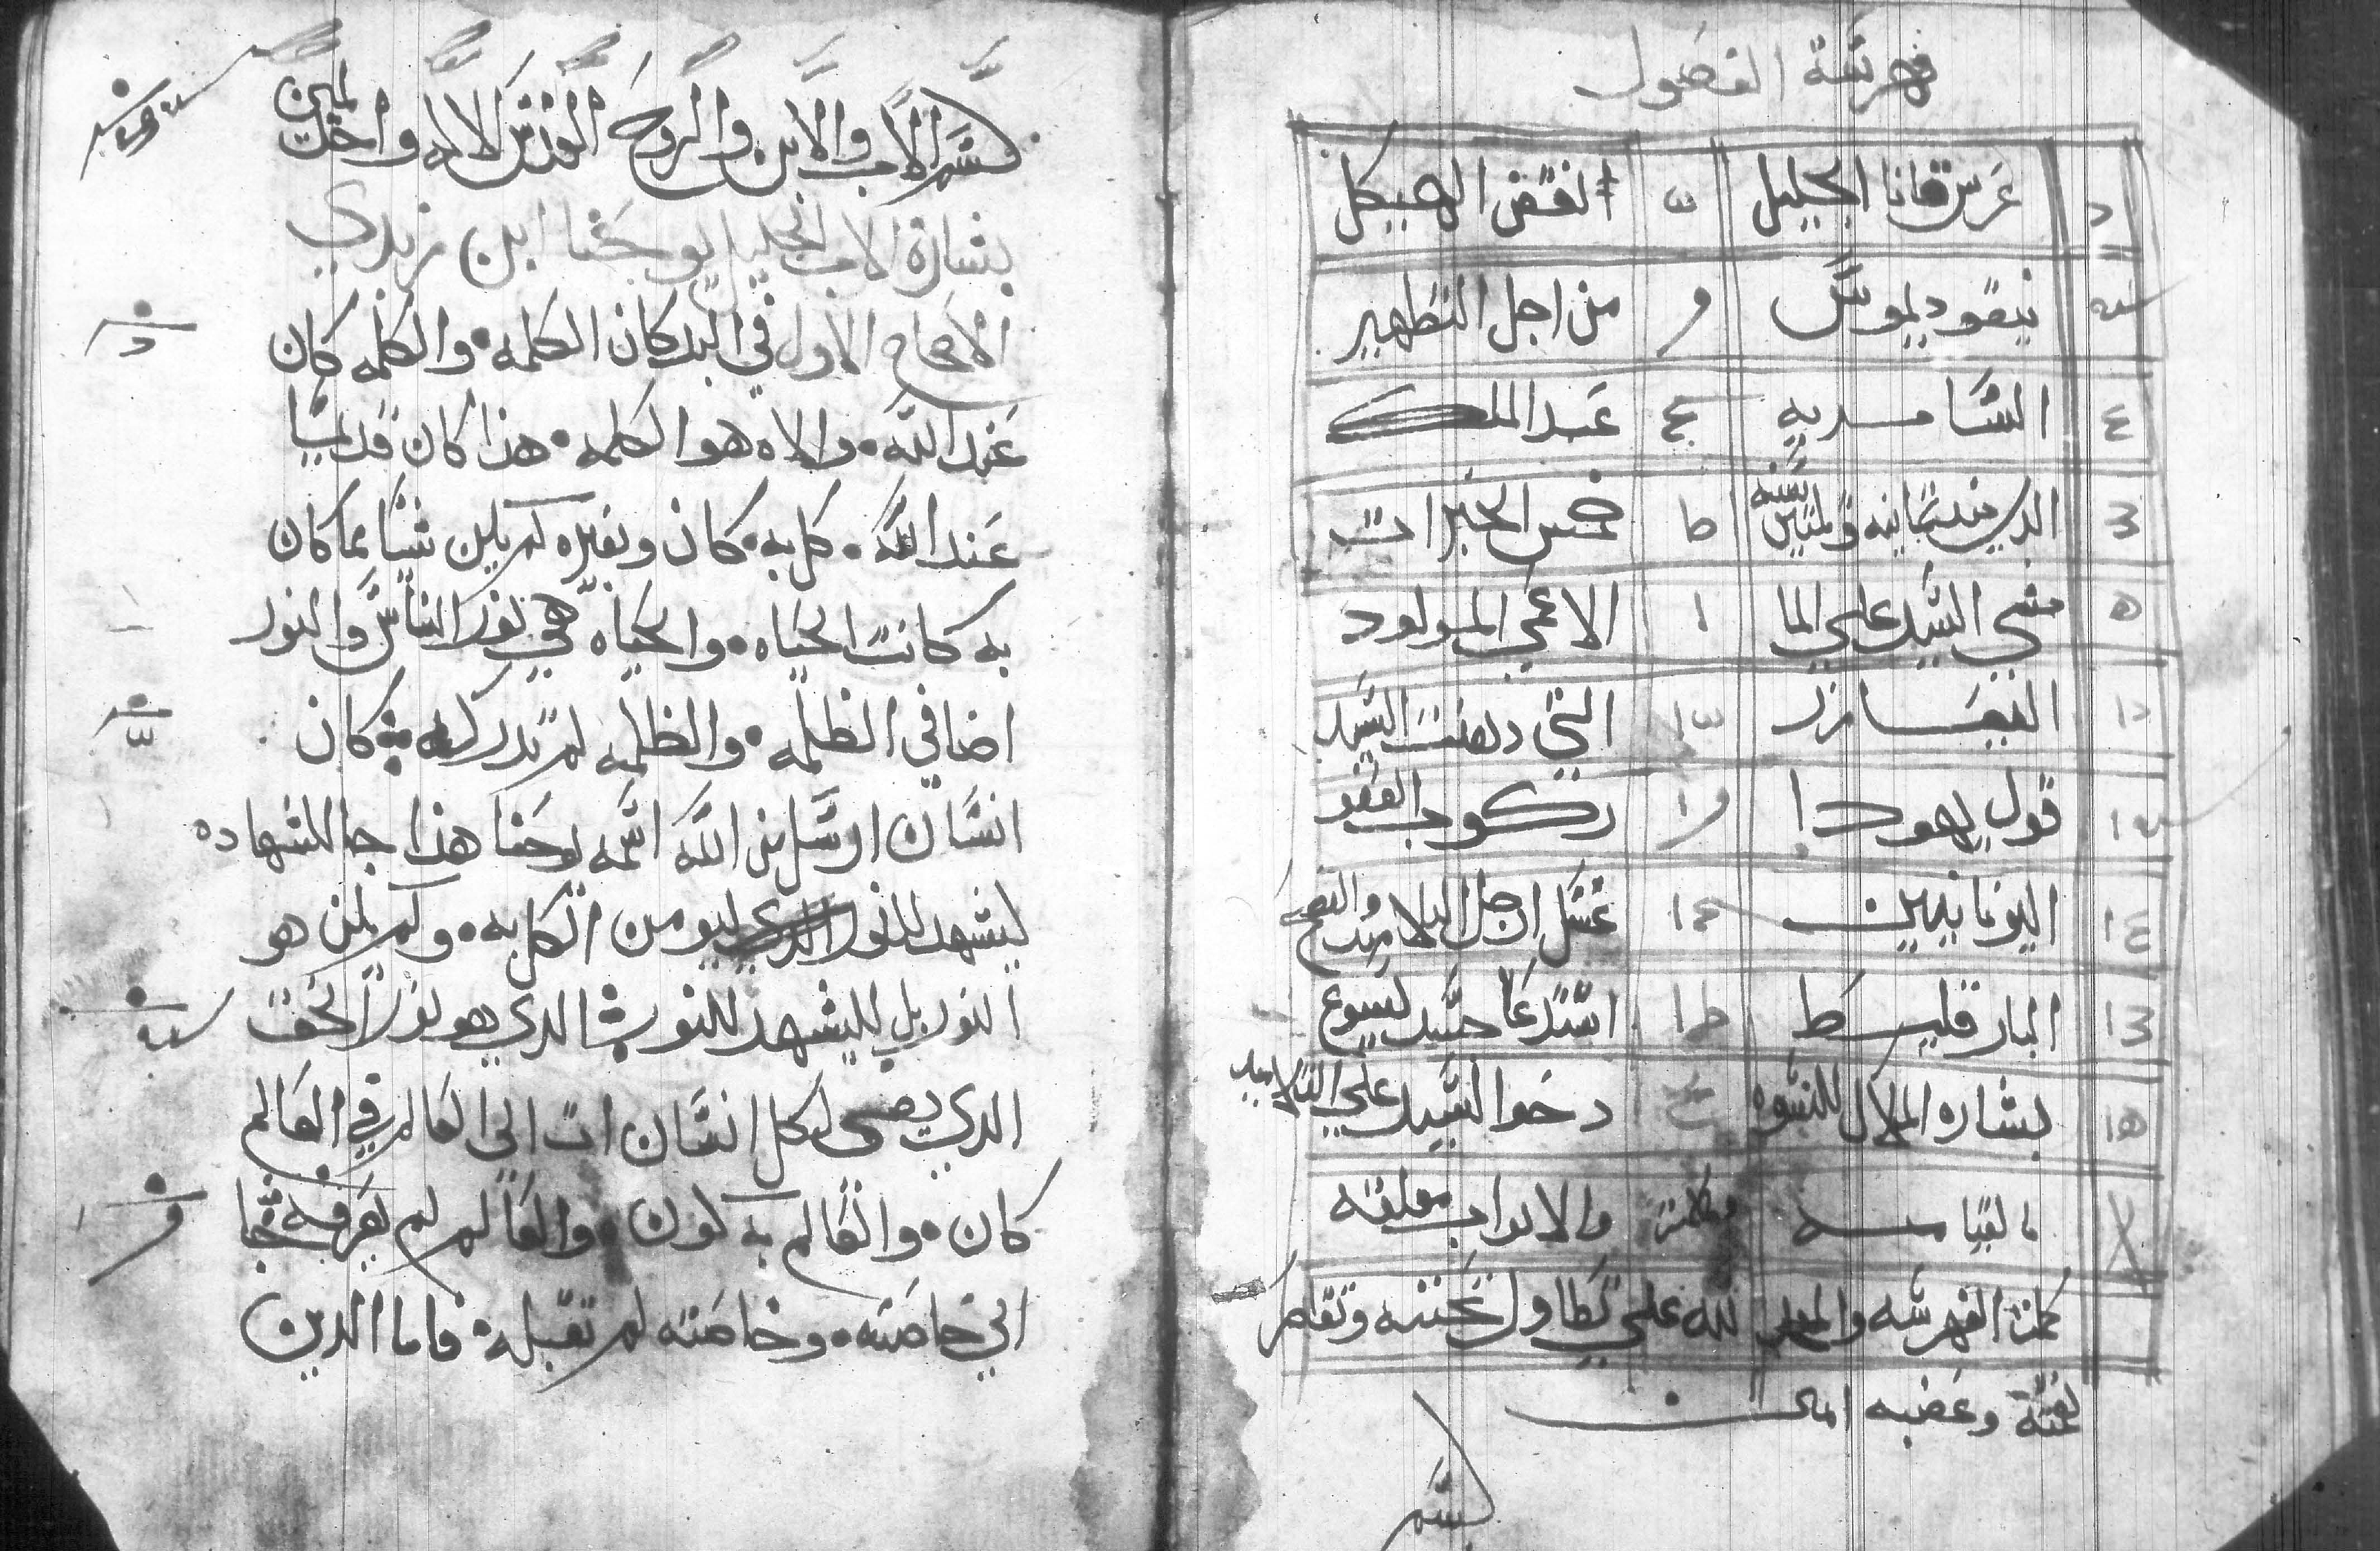 فهرسة الفصول
عرس قانا الجليل انقض الهيكل
نيقوديموس من اجل التطهير
السامريه عبد الملك
الدي تمانيه وثلثين سنه خمس الخبزات
مشي السيد علي الما الاعمي المولود
العازر التي دهنت السيد
قول يهودا ركوب العفو
اليونانيين غسل ارجل التلاميد والفصح
البارقليط استدعا جسد يسوع
بشاره الملاك للنسوه دخوا السيد علي التلاميد
القيامه والابواب مغلقه
كملة الفهرسه والمجد لله علي تطاول تحننه وتقاصر
نقمته وغضبه امين
بسم
بسم الاب والابن والروح القدس الاله واحد امين
بشارة الاب الجليل يوحنا ابن زبدي
الاصحاح الاول في البد كان الكلمه والكلمه كان
عند الله والاه هو الكلمه هذا كان قديما
عند الله كل به كان وبغيره لم يكن شيا مما كان
به كانت الحياه والحياه هي نور الناس والنور
اضا في الظلمه والظلمه لم تدركه كان
انسان ارسل من الله اسمه يوحنا هذا جا للشهاده
ليشهد للنور الدي ليومن الكل به ولم يكن هو
النور بل ليشهد للنور الدي هو نور الحق
الدي يضي لكل انسان ات الي العالم في العالم
كان والعالم به كون والعالم لم يعرفه جا
الي خاصته وخاصته لم تقبله فاما الدين